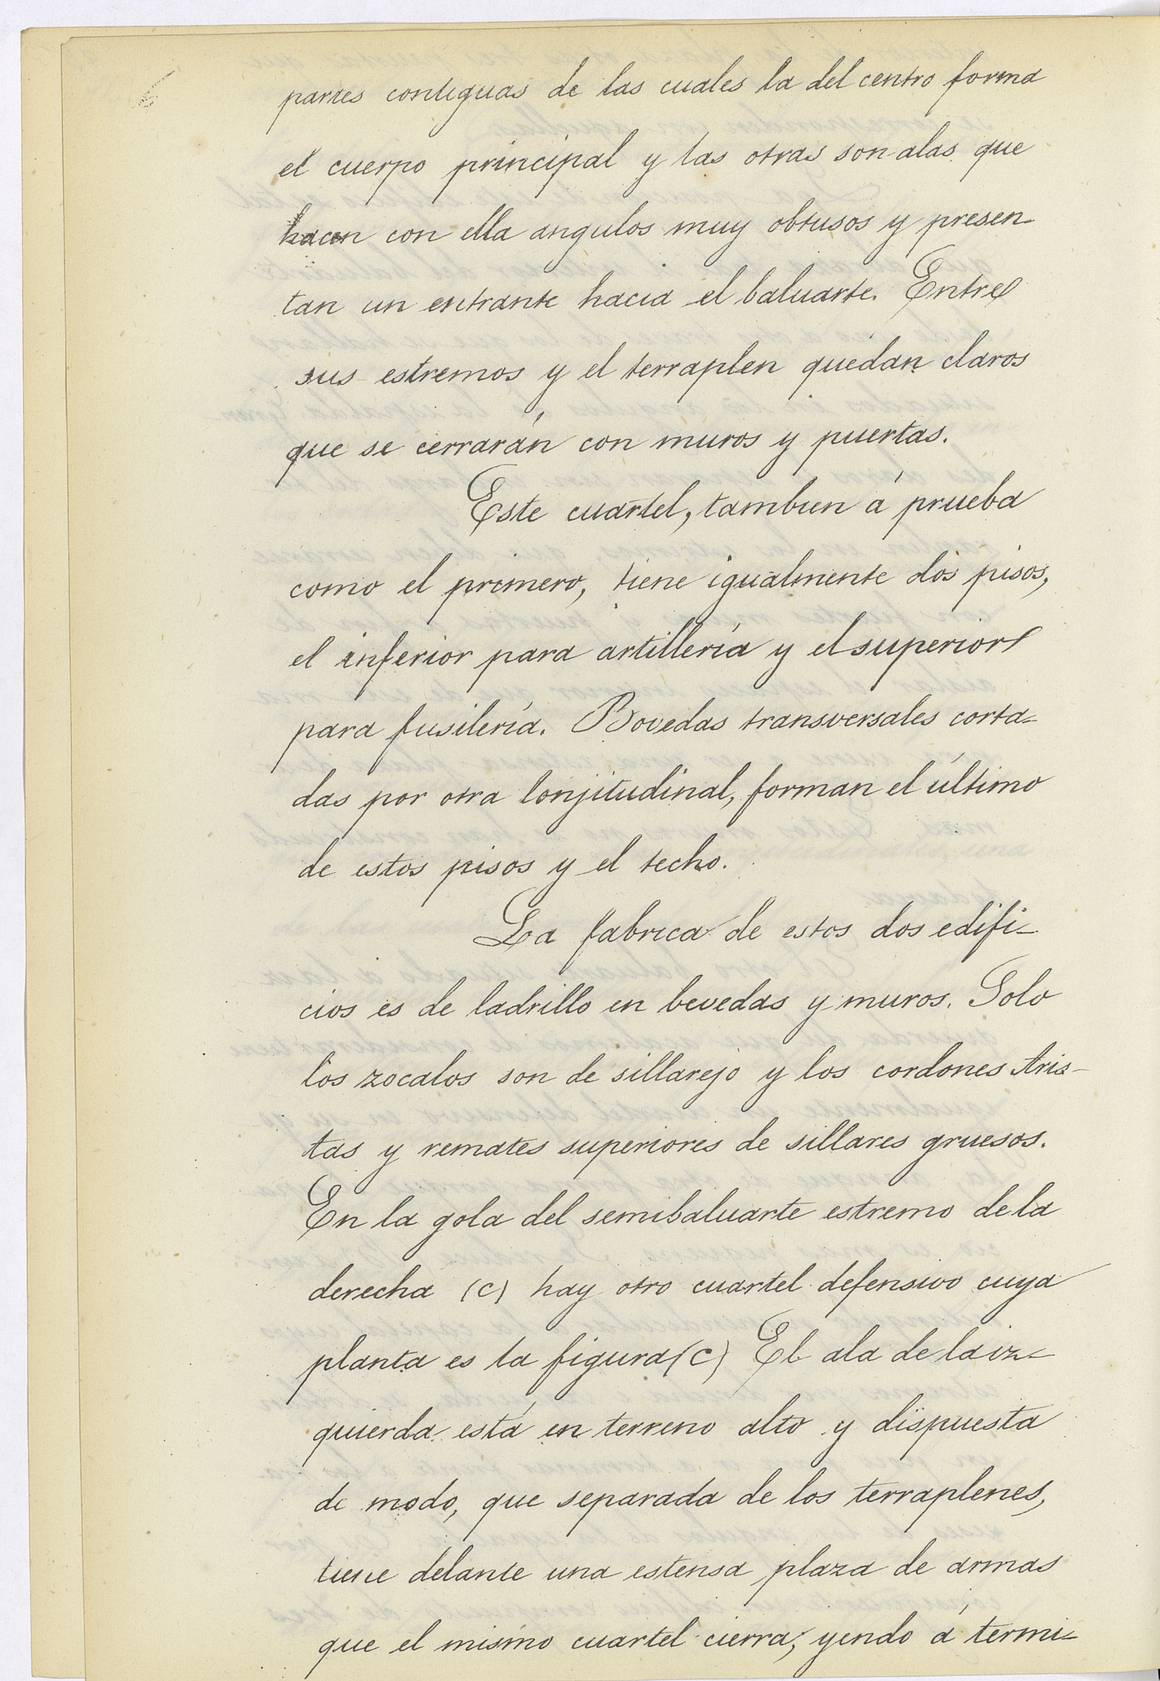 6
partes contiguas de las cuales la del centro forma
el cuerpo principal y las otras son alas que
hacen con ella angulos muy obtusos y presen-
tan un entrante hacia el baluarte. Entre
sus estremos y el terraplen quedan claros
que se cerrarán con muros y puertas.
Este cuartel, tambien á prueba
como el primero, tiene igualmente dos pisos,
el inferior para artillería y el superior
para fusilería. Bovedas transversales corta-
das por otra lonjitudinal, forman el último
de estos pisos y el techo.
La fabrica de estos dos edifi-
cios es de ladrillo en bovedas y muros. Solo
los zocalos son de sillarejo y los cordones Aris-
tas y remates superiores de sillares gruesos.
En la gola del semibaluarte estremo de la
derecha (C) hay otro cuartel defensivo cuya
planta es la figura (C) El ala de la iz-
quierda está en terreno alto y dispuesta
de modo, que separada de los terraplenes,
tiene delante una estensa plaza de armas
que el mismo cuartel cierra, yendo á termi-